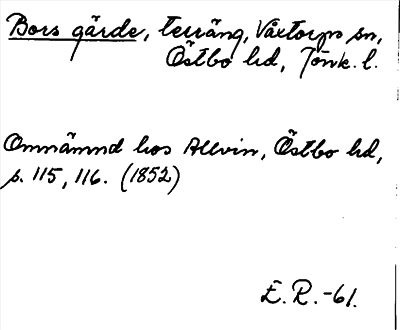 Bors gärde, terräng, Våxtorps sn,
Östbo hd, Jönk. l.
Omnämnd hos Allvin, Östbo hd,
s. 115, 116. (1852)
E. R. -61.